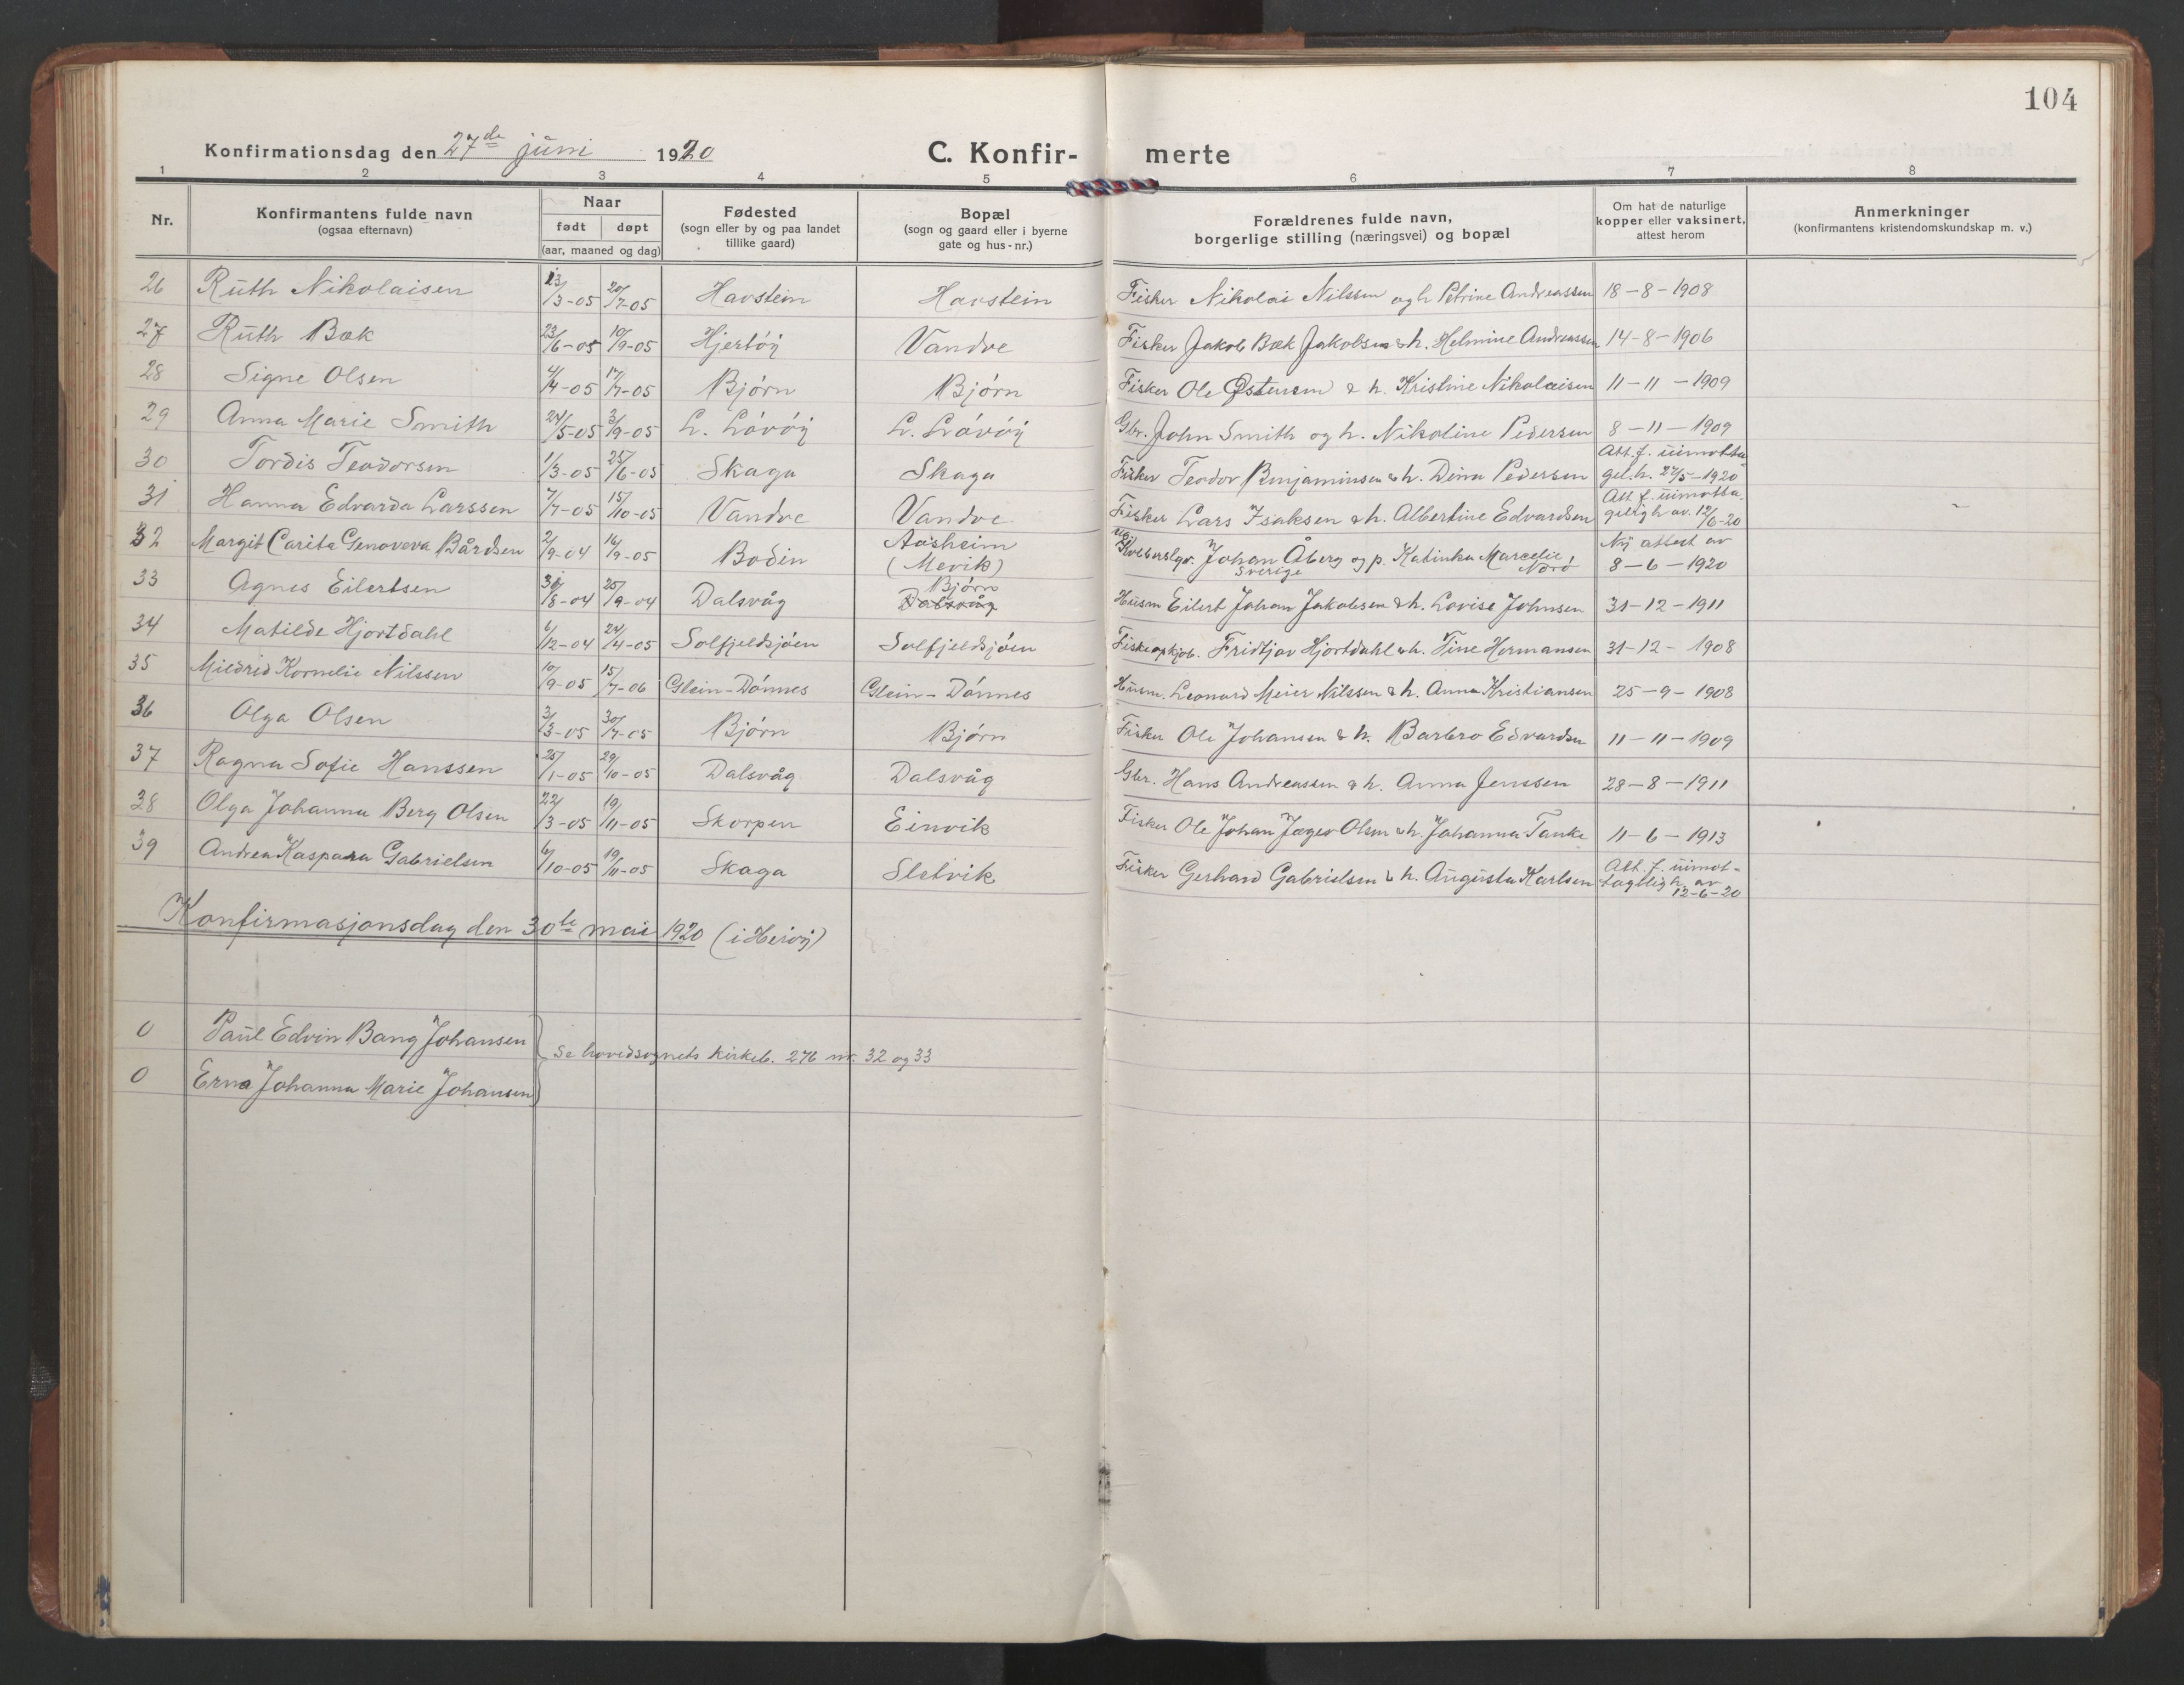 104
Konfirmationsdag den 27de juni 1920 C. Konfir- merte
1 2 3 4 5 6 7 8
Nr. Konfirmantens fulde navn (ogsaa efternavn) Naar født døpt (aar, maaned og dag) Fødested (sogn eller by og paa landet tillike gaard) Bopæl (sogn og gaard eller i byerne gate og hus-nr.) Forældrenes fulde navn, borgerlige stilling (næringsvei) og bopæl Om hat de naturlige kopper eller vaksinert, attest herom Anmerkninger (konfirmantens kristendomskundskap m. v.)
26 Ruth Nikolaisen 13/3-05 20/7-05 Havstein Havstein Fisker Nikolai Nilssen og h. Petrine Andreassen 18-8-1908
27 Ruth Bæk 23/6-05 10/9-05 Hjertöy Vandve Fisker Jakob Bæk Jakobsen & h. Helmine Andreassen 14-8-1906
28 Signe Olsen 4/4-05 17/7-05 Bjørn Bjørn Fisker Ole Østensen & h. Kristine Nikolaisen 11-11-1909
29 Anna Marie Smith 24/5-05 3/9-05 L. Lövöy L. Lövöy Gbr. John Smith og h. Nikoline Pedersen 8-11-1909
30 Tordis Teodorsen 1/3-05 25/6-05 Skaga Skaga Fisker Teodor Benjaminsen & h. Dina Pedersen Att. f. uimotta- gel.h. 27/5-1920
31 Hanna Edvarda Larssen 7/7-05 15/10-05 Vandve Vandve Fisker Lars Isaksen & h. Albertine Edvardsen Att. f. uimotta- geligh av. 12/6-20
32 Margit Carita Genoveva Bårdsen 2/9-04 16/9-05 Bodin Aasheim (Mevik) Johan Åberg og p. Katinka Marcelie, Sverige Nord Ny attest av 8-6-1920
33 Agnes Eilertsen 31/8-04 25/9-04 Dalsvåg Bjørn Dalsvåg Husm Eilert Johan Jakobsen & h. Lovise Johnsen 31-12-1911
34 Matilde Hjortdahl 6/12-04 24/4-05 Solfjeldsjøen Solfjeldsjøen Fiskeopkjøb. Fridtjov Hjortdahl & h. Tine Hermansen 31-12-1908
35 Mildrid Kornelie Nilssen 10/9-05 15/7-06 Glein-Dönnes Glein-Dönnes Husm. Leonard Meier Nilssen & h. Anna Kristiansen 25-9-1908
36 Olga Olsen 3/3-05 30/7-05 Bjørn Bjørn Fisker Ole Johansen & h. Barbro Edvardsen 11-11-1909
37 Ragna Sofie Hanssen 25/1-05 29/10-05 Dalsvåg Dalsvåg Gbr. Hans Andreassen & h. Anna Jenssen 28-8-1911
38 Olga Johanna Berg Olsen 22/3-05 19/11-05 Skorpen Einvik Fisker Ole Johan Jæger Olsen & h. Johanna Tanke 11-6-1913
39 Andrea Kaspara Gabrielsen 6/10-05 19/11-05 Skaga Sletvik Fisker Gerhard Gabrielsen & h. Augusta Karlsen Att. f. uimot- tagbligh. av 12-6-20
Konfirmasjonsdag den 30te mai 1920 (i Heröy)
0 Paul Edvin Bang Johansen
Se hovedsognets kirkeb. 276 nr. 32 og 33
0 Erna Johanna Marie Johansen